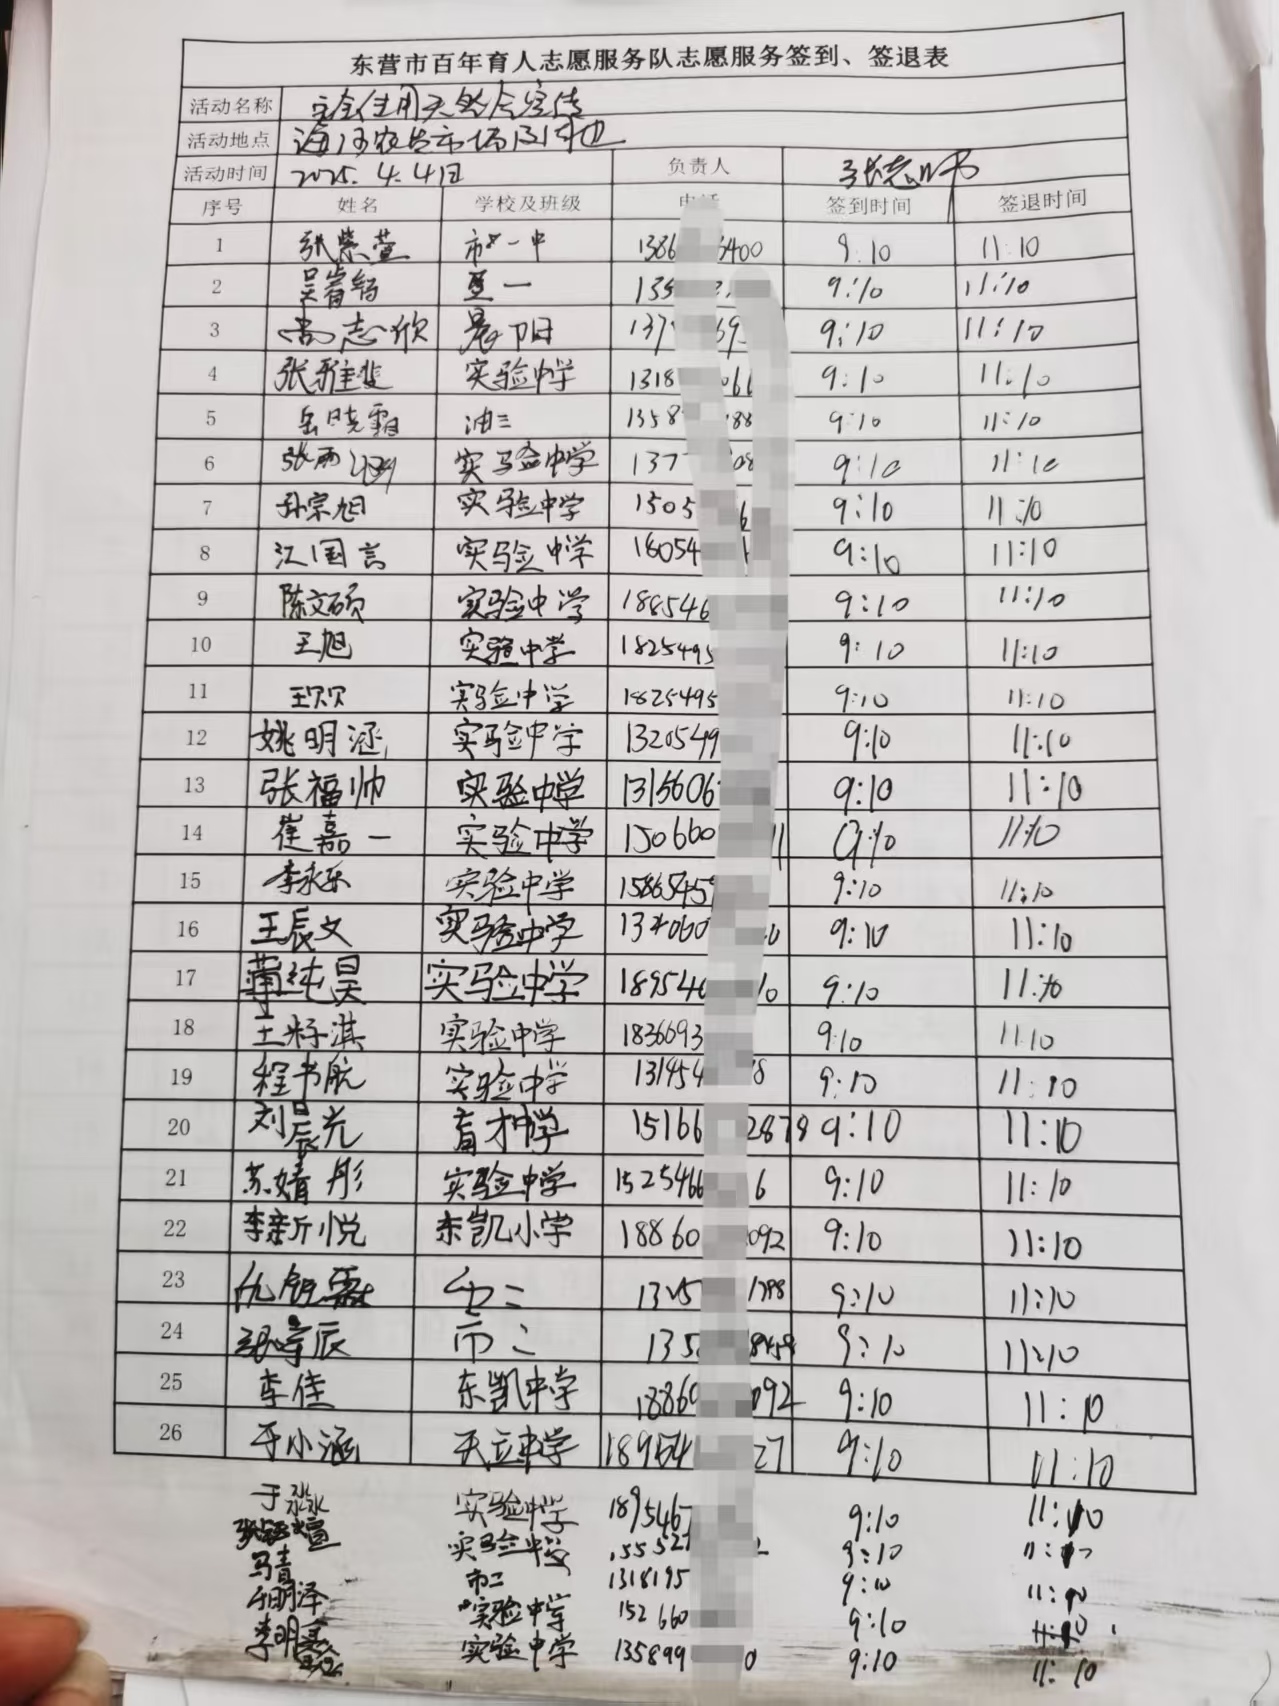 东营市百年育人志愿服务队志愿服务签到、签退表
活动名称 安全使用天然气宣传
活动地点 海河农贸市场及周边
活动时间 2025.4.4日 负责人
序号 姓名 学校及班级 电话 签到时间 签退时间
1 张紫萱 市一中 138 6400 9:10 11:10
2 吴睿 一 135 9:10 11:10
3 尚志欣 晨阳 137 69 9:10 11:10
4 张雅斐 实验中学 1318 066 9:10 11:10
5 岳晓霜 油三 1358 88 9:10 11:10
6 张雨 实验中学 137 08 9:10 11:10
7 孙宗旭 实验中学 1505 6 9:10 11:10
8 江国言 实验中学 18054 9:10 11:10
9 陈文硕 实验中学 188546 9:10 11:10
10 王旭 实验中学 1825495 9:10 11:10
11 王贝贝 实验中学 1825495 9:10 11:10
12 姚明涵 实验中学 1320549 9:10 11:10
13 张福帅 实验中学 1315606 9:10 11:10
14 崔嘉一 实验中学 150660 11 9:10 11:10
15 李永乐 实验中学 1586545 9:10 11:10
16 王辰文 实验中学 0 9:10 11:10
17 纯昊 实验中学 189540 10 9:10 11:10
18 王籽淇 实验中学 1836693 9:10 11:10
19 程书航 实验中学 131954 8 9:10 11:10
20 刘晨光 育才中学 15166 2878 9:10 11:10
21 苏婧彤 实验中学 1525466 6 9:10 11:10
22 李新悦 东凯小学 18860 092 9:10 11:10
23 仇 二 9:10 11:10
24 张 辰 市二 135 9:10 11:10
25 李佳 东凯中学 18860 092 9:10 11:10
26 于小涵 天立中学 18954 27 9:10 11:10
于淼淼 实验中学 1895467 9:10 11:10
实验中学 15552 2 9:10 11:10
马青 市二 1318195 9:10 11:10
明泽 实验中学 152660 9:10 11:10
李明 实验中学 135899 0 9:10 11:10